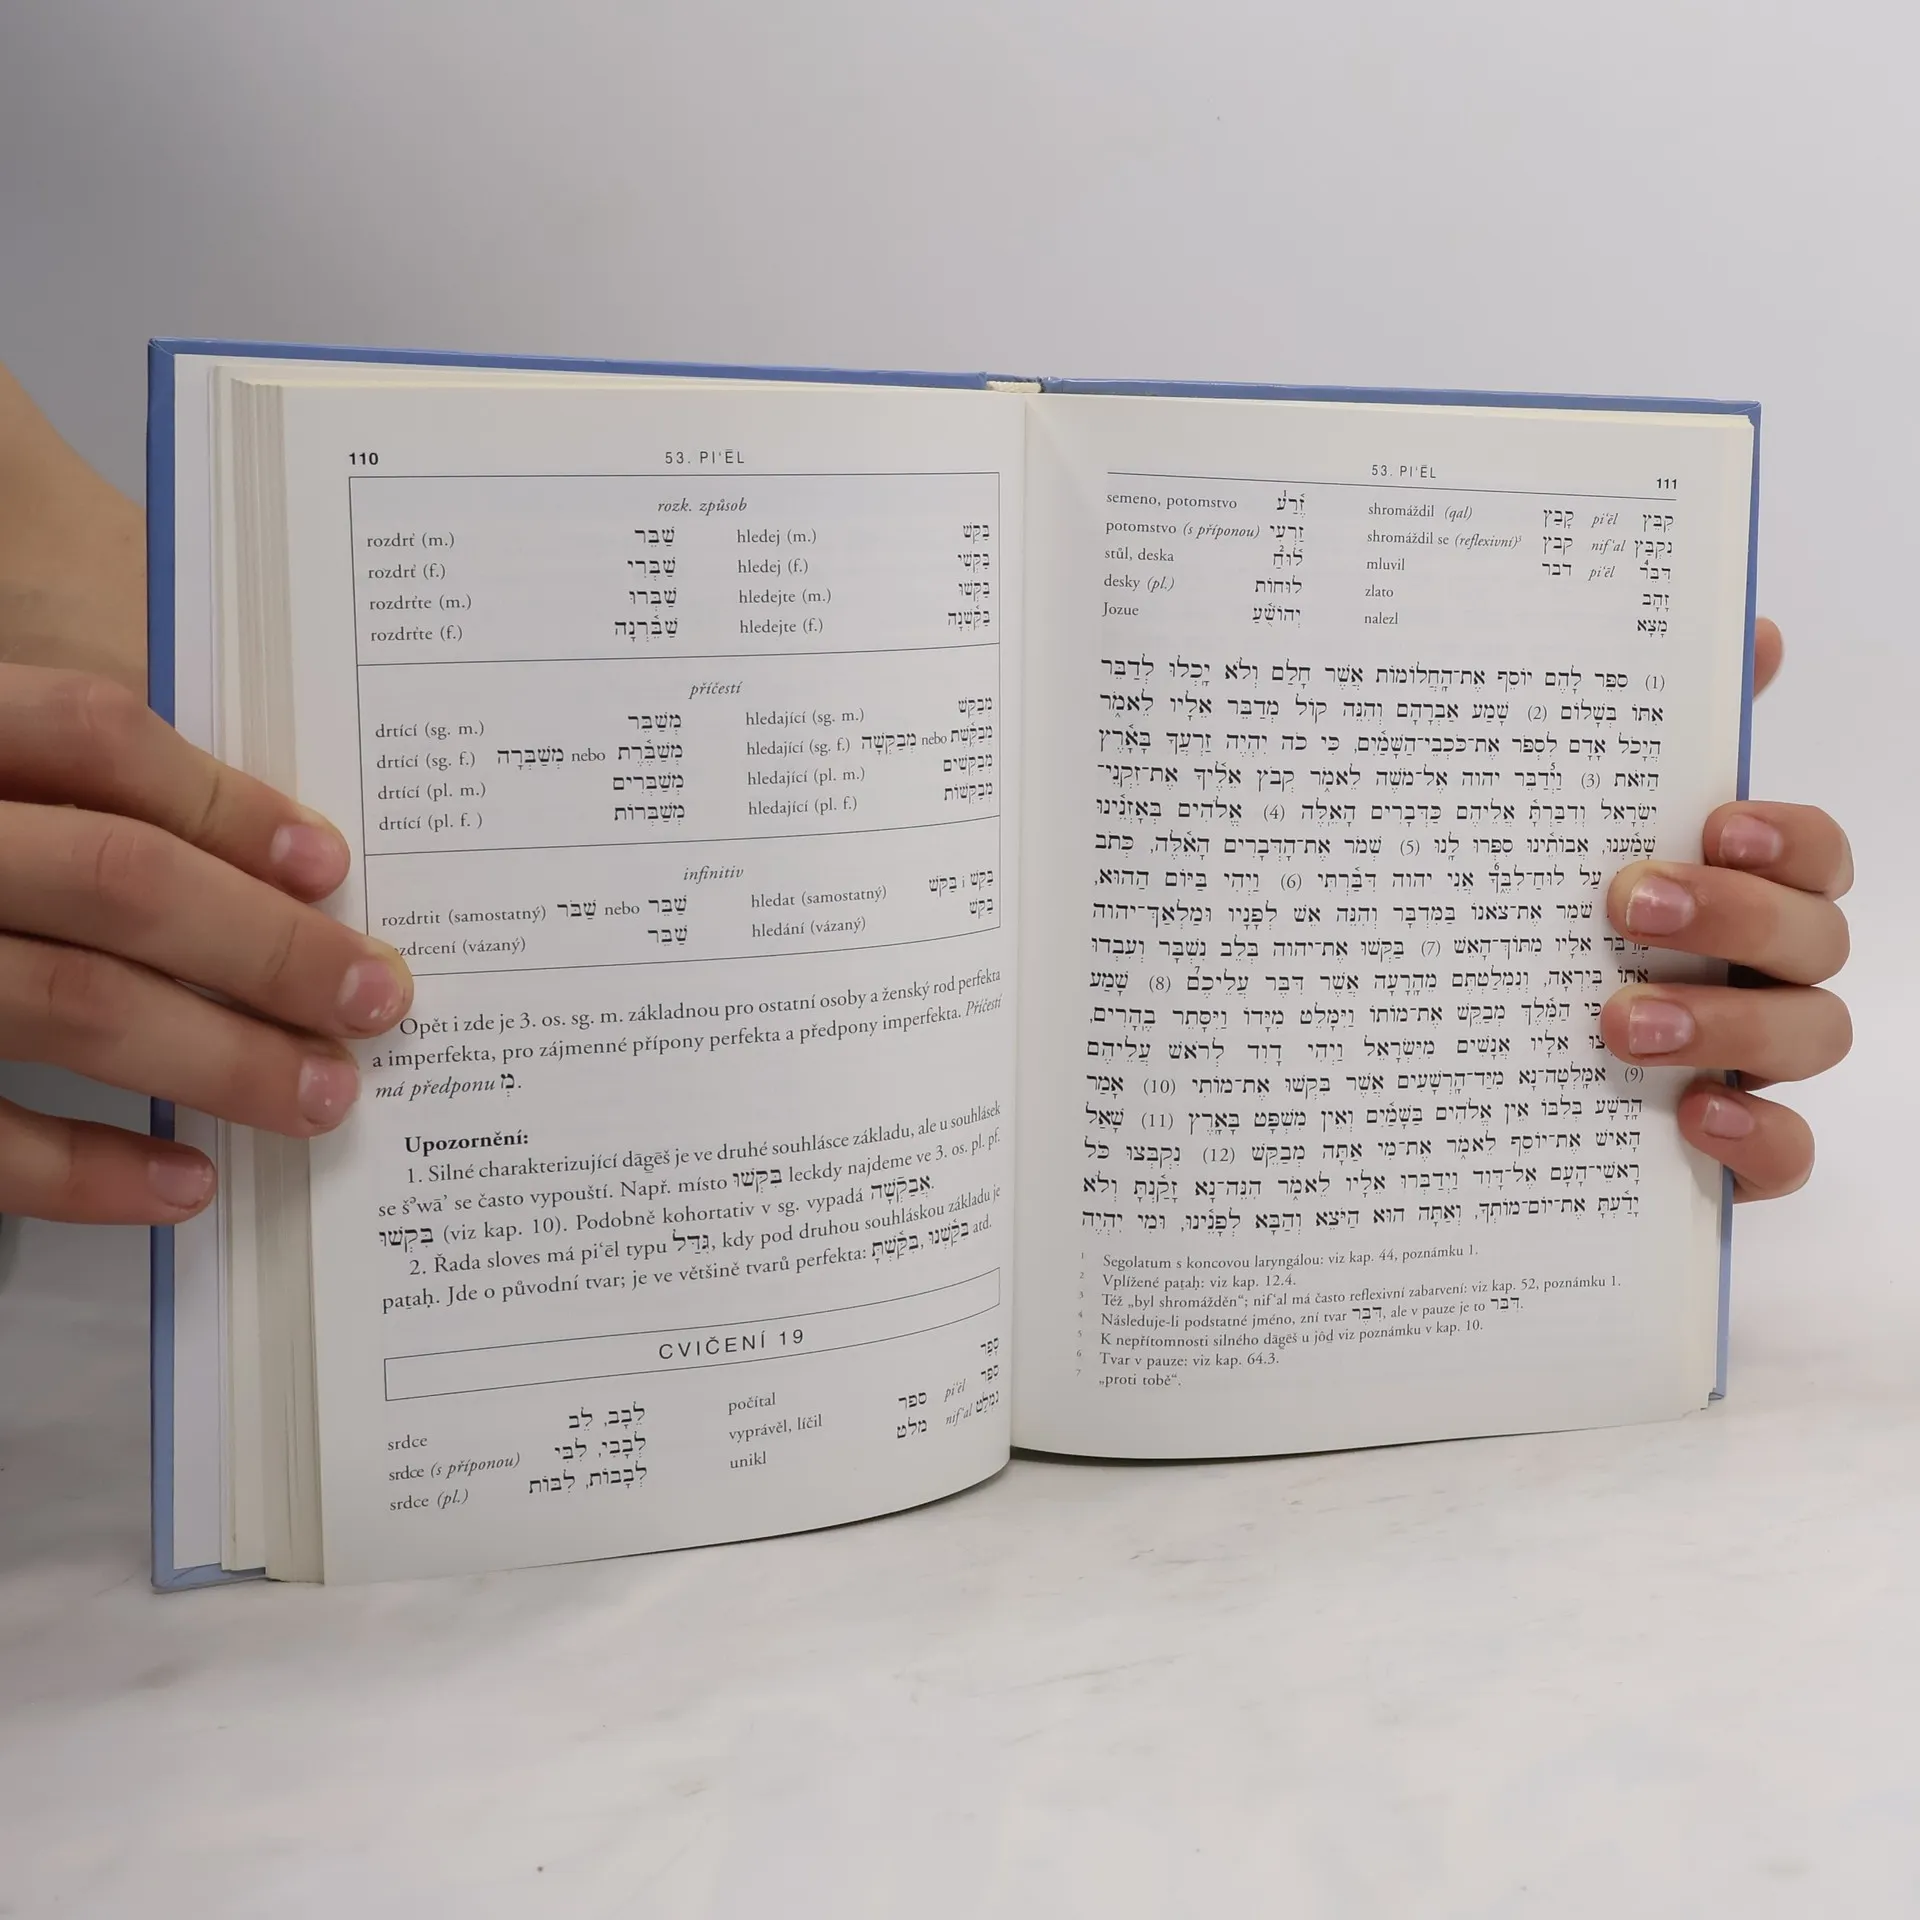 110
53. PIʿĒL
rozk. způsob
rozdrť (m.) שַׁבֵּר hledej (m.) בַּקֵּשׁ
rozdrť (f.) שַׁבְּרִי hledej (f.) בַּקְּשִׁי
rozdrťte (m.) שַׁבְּרוּ hledejte (m.) בַּקְּשׁוּ
rozdrťte (f.) שַׁבֵּ֫רְנָה hledejte (f.) בַּקֵּ֫שְׁנָה
příčestí
drtící (sg. m.) מְשַׁבֵּר hledající (sg. m.) מְבַקֵּשׁ
drtící (sg. f.) מְשַׁבֶּ֫רֶת nebo מְשַׁבְּרָה hledající (sg. f.) מְבַקֶּ֫שֶׁת nebo מְבַקְּשָׁה
drtící (pl. m.) מְשַׁבְּרִים hledající (pl. m.) מְבַקְּשִׁים
drtící (pl. f. ) מְשַׁבְּרוֹת hledající (pl. f.) מְבַקְּשׁוֹת
infinitiv
rozdrtit (samostatný) שַׁבֵּר nebo שַׁבֹּר hledat (samostatný) בַּקֵּשׁ i בַּקֹּשׁ
zdrcení (vázaný) שַׁבֵּר hledání (vázaný) בַּקֵּשׁ
Opět i zde je 3. os. sg. m. základnou pro ostatní osoby a ženský rod perfekta
a imperfekta, pro zájmenné přípony perfekta a předpony imperfekta. Příčestí
má předponu מְ.
Upozornění:
1. Silné charakterizující dāgēš je ve druhé souhlásce základu, ale u souhlásek
se šᵊwāʾ se často vypouští. Např. místo בִּקְּשׁוּ leckdy najdeme ve 3. os. pl. pf.
בִּקְשׁוּ (viz kap. 10). Podobně kohortativ v sg. vypadá אֲבַקְשָׁה.
2. Řada sloves má piʿēl typu גִּדַּל, kdy pod druhou souhláskou základu je
paṯaḥ. Jde o původní tvar; je ve většině tvarů perfekta: בִּקַּ֫שְׁתָּ, בִּקַּ֫שְׁנוּ atd.
CVIČENÍ 19
srdce לֵבָב, לֵב počítal סָפַר
srdce (s příponou) לְבָבִי, לִבִּי vyprávěl, líčil ספר piʿēl סִפֵּר
srdce (pl.) לְבָבוֹת, לִבּוֹת unikl מלט nifʿal נִמְלַט
53. PIʿĒL
111
semeno, potomstvo זֶ֫רַע¹ shromáždil (qal) קָבַץ piʿēl קִבֵּץ
potomstvo (s příponou) זַרְעִי shromáždil se (reflexivní)³ קבץ nifʿal נִקְבַּץ
stůl, deska לוּחַ² mluvil דבר piʿēl דִּבֶּר⁴
desky (pl.) לוּחוֹת zlato זָהָב
Jozue יְהוֹשֻׁ֫עַ nalezl מָצָא
(1) סִפֵּר לָהֶם יוֹסֵף אֶת־הַחֲלוֹמוֹת אֲשֶׁר חָלַם וְלֹא יָכְלוּ לְדַבֵּר
אִתּוֹ בְּשָׁלוֹם (2) שָׁמַע אַבְרָהָם וְהִנֵּה קוֹל מְדַבֵּר אֵלָיו לֵאמֹר
הֲיָכֹל אָדָם לִסְפֹּר אֶת־כֹּכְבֵי־הַשָּׁמַ֫יִם, כִּי כֹה יִהְיֶה זַרְעֲךָ בָּאָ֫רֶץ
הַזֹּאת (3) וַיְדַבֵּר יהוה אֶל־מֹשֶׁה לֵאמֹר קְבֹץ אֵלֶ֫יךָ אֶת־זִקְנֵי־
יִשְׂרָאֵל וְדִבַּרְתָּ אֲלֵיהֶם כַּדְּבָרִים הָאֵ֫לֶּה (4) אֱלֹהִים בְּאָזְנֵ֫ינוּ
שָׁמַ֫עְנוּ, אֲבוֹתֵ֫ינוּ סִפְּרוּ לָ֫נוּ (5) שְׁמֹר אֶת־הַדְּבָרִים הָאֵ֫לֶּה, כְּתֹב
עַל לוּחַ־לִבֶּ֫ךָ אֲנִי יהוה דִּבַּ֫רְתִּי (6) וַיְהִי בַּיּוֹם הַהוּא,
שֹׁמֵר אֶת־צֹאנוֹ בַּמִּדְבָּר וְהִנֵּה אֵשׁ לְפָנָיו וּמַלְאַךְ־יהוה
מְדַבֵּר אֵלָיו מִתּוֹךְ־הָאֵשׁ (7) בַּקְּשׁוּ אֶת־יהוה בְּלֵב נִשְׁבָּר וְעִבְדוּ
אֹתוֹ בְּיִרְאָה, וְנִמְלַטְתֶּם מֵהָרָעָה אֲשֶׁר דִּבֶּר עֲלֵיכֶם⁷ (8) שָׁמַע
כִּי הַמֶּ֫לֶךְ מְבַקֵּשׁ אֶת־מוֹתוֹ וַיִּמָּלֵט מִיָּדוֹ וַיִּסָּתֵר בֶּהָרִים,
אֵלָיו אֲנָשִׁים מִיִּשְׂרָאֵל וַיְהִי דָוִד לְרֹאשׁ עֲלֵיהֶם
(9) אִמָּלְטָה־נָּא מִיַּד־הָרְשָׁעִים אֲשֶׁר בִּקְשׁוּ אֶת־מוֹתִי (10) אָמַר
הָרָשָׁע בְּלִבּוֹ אֵין אֱלֹהִים בַּשָּׁמַ֫יִם וְאֵין מִשְׁפָּט בָּאָ֫רֶץ (11) שָׁאַל
הָאִישׁ אֶת־יוֹסֵף לֵאמֹר אֶת־מִי אַתָּה מְבַקֵּשׁ (12) נִקְבְּצוּ כֹּל
רָאשֵׁי־הָעָם אֶל־דָּוִד וַיְדַבְּרוּ אֵלָיו לֵאמֹר הִנֵּה־נָא זָקַ֫נְתָּ וְלֹא
יָדַ֫עְתָּ אֶת־יוֹם־מוֹתֶךָ, וְאַתָּה הוּא הַיֹּצֵא וְהַבָּא לְפָנֵ֫ינוּ, וּמִי יִהְיֶה
¹ Segolatum s koncovou laryngálou: viz kap. 44, poznámku 1.
² Vplížené paṯaḥ: viz kap. 12.4.
³ Též „byl shromážděn“; nifʿal má často reflexivní zabarvení: viz kap. 52, poznámku 1.
⁴ Následuje-li podstatné jméno, zní tvar דִּבֶּר, ale v pauze je to דִּבֵּר.
⁵ K nepřítomnosti silného dāgēš u jōḏ viz poznámku v kap. 10.
⁶ Tvar v pauze: viz kap. 64.3.
⁷ „proti tobě“.